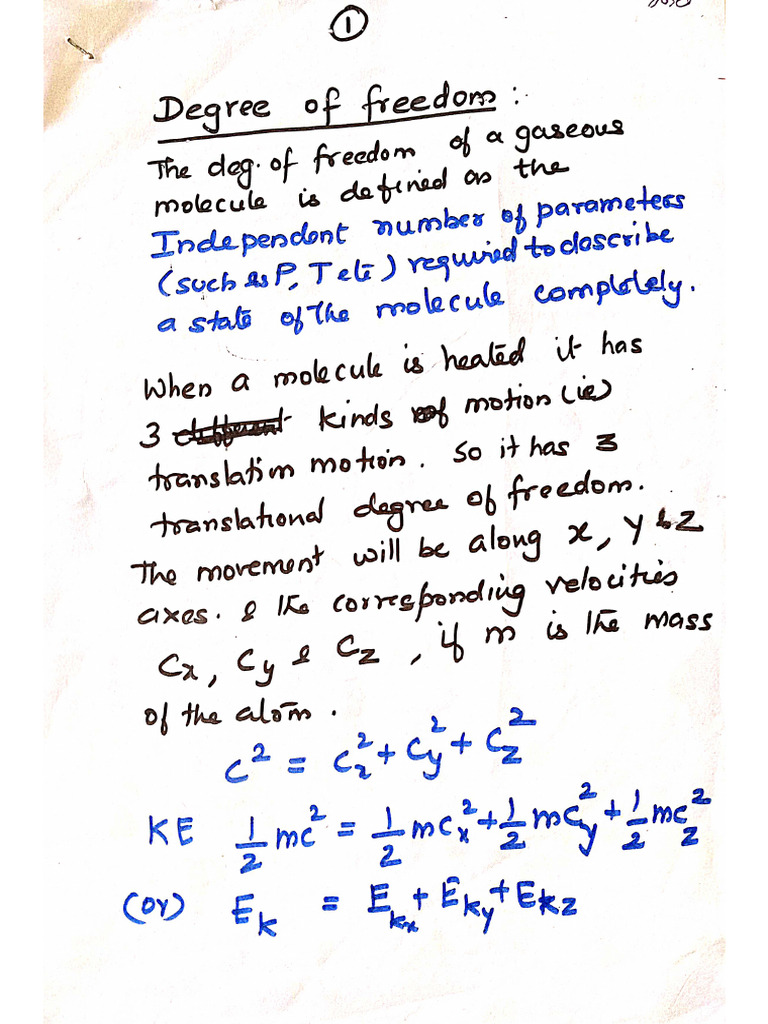 1
Degree of freedom :
The deg. of freedom of a gaseous
molecule is defined as the
Independent number of parameters
(such as P, T etc) required to describe
a state of the molecule completely.
When a molecule is heated it has
3 different kinds of motion (ie)
translatim motion. So it has 3
translational degree of freedom.
The movement will be along x, y & z
axes. & the corresponding velocities
Cx, Cy & Cz, if m is the mass
of the atom.
C² = C₂² + Cy² + Cz²
KE ½ mc² = ½ mcx² + ½ mcy² + ½ mcz²
(or) Ek = Ekx + Eky + Ekz